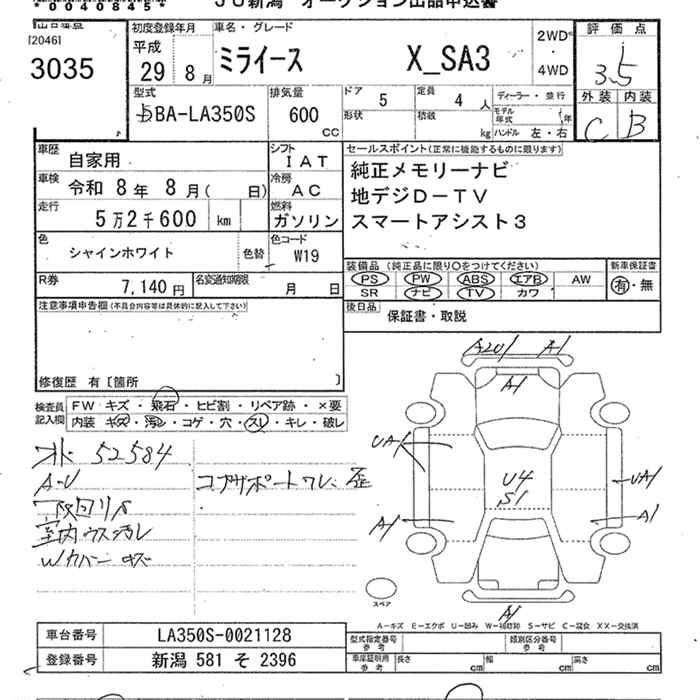 *0040845*
JU新潟 オークション出品申込書
[2046]
3035
初度登録年月
平成
29年 8月
車名・グレード
ミライース X_SA3
2WD
4WD
評価点
3.5
外装 内装
C B
型式
DBA-LA350S
排気量
600
CC
ドア 5
定員 4 人
形状
積載 kg
ディーラー・並行
モデル年式 年
ハンドル 左・右
車歴 自家用
シフト IAT
車検 令和 8年 8月( 日)
冷房 AC
走行 5万2千600 km
燃料 ガソリン
色 シャインホワイト
色替
色コード W19
R券 7,140円
名変通知期限 月 日
セールスポイント(正常に機能するものに限ります)
純正メモリーナビ
地デジD-TV
スマートアシスト3
装備品 (純正品に限り○をつけてください)
PS PW ABS エアB AW
SR ナビ TV カワ
新車保証書
有・無
後日品 保証書・取説
注意事項申告欄(不具合内容等は具体的に記入して下さい)
修復歴 有〔箇所 〕
検査員記入欄
FW キズ・飛石・ヒビ割・リペア跡・×要
内装 キズ・汚レ・コゲ・穴・スレ・キレ・破レ
52584
A-U
室内ウス汚レ
Wカバー キズ
A1
A1
UA1
U4
S1
UA1
A1
A1
A1
スペア
A-キズ E-エクボ U-凹み W-補修跡 S-サビ C-腐食 XX-交換済
車台番号 LA350S-0021128
登録番号 新潟 581 そ 2396
型式指定番号 参考
類別区分番号 参考
車庫証明用 参考
長さ cm
幅 cm
高さ cm